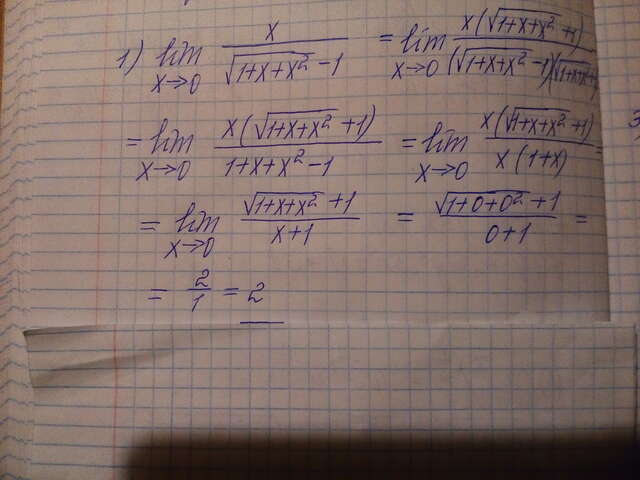 1) lim x→0 x / (√(1+x+x²) -1) = lim x→0 x(√(1+x+x²) +1) / (√(1+x+x²) -1)(√(1+x+x²)+
= lim x→0 x(√(1+x+x²) +1) / (1+x+x²-1) = lim x→0 x(√(1+x+x²) +1) / x(1+x) =
= lim x→0 (√(1+x+x²) +1) / (x+1) = (√(1+0+0²) +1) / (0+1) =
= 2/1 = 2